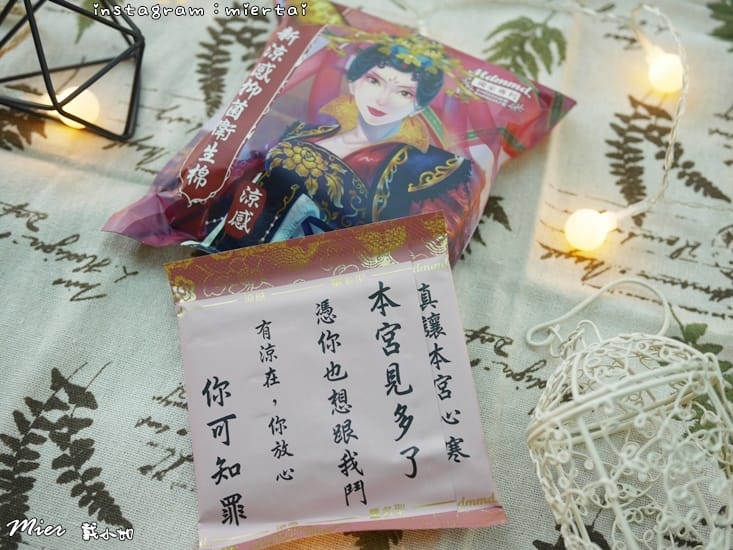 instagram：miertai
新涼感抑菌衛生棉
涼感
dmmd.
真讓本宮心寒
本宮見多了
憑你也想跟我鬥
有涼在，你放心
你可知罪
dmmd.
dmmd
Mier 戴小如